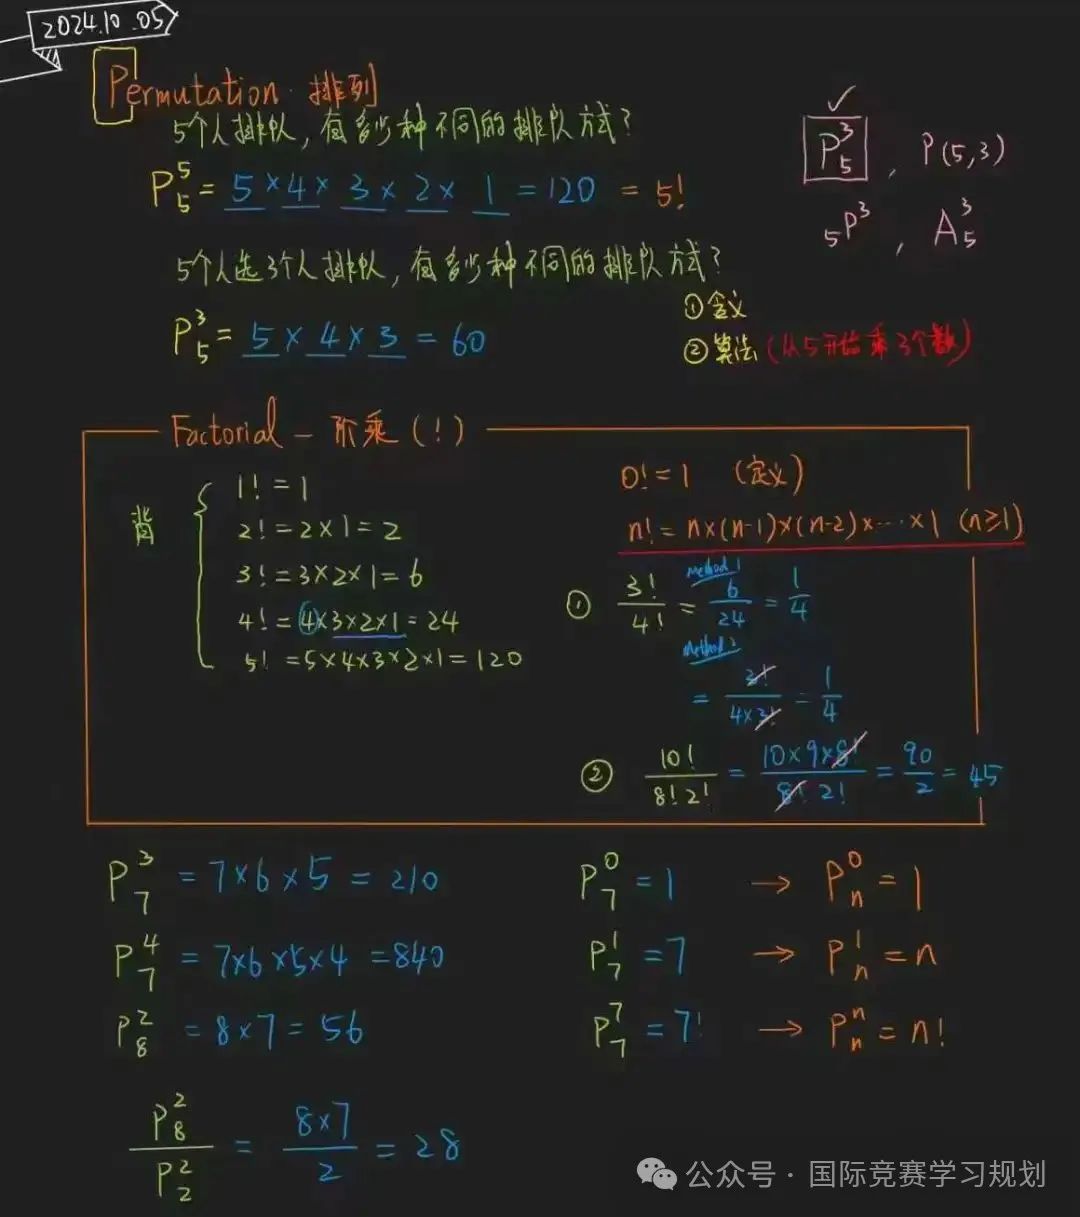 2024.10.05
Permutation 排列
5个人排队，有多少种不同的排队方式？
P₅⁵ = 5 × 4 × 3 × 2 × 1 = 120 = 5!
✓
P₅³ , P(5,3)
₅P³ , A₅³
5个人选3个人排队，有多少种不同的排队方式？
P₅³ = 5 × 4 × 3 = 60
① 含义
② 算法 (从5开始乘3个数)
Factorial — 阶乘 (!)
背
1! = 1
2! = 2×1 = 2
3! = 3×2×1 = 6
4! = 4×3×2×1 = 24
5! = 5×4×3×2×1 = 120
0! = 1 (定义)
n! = n×(n-1)×(n-2)×⋯×1 (n≥1)
Method 1
① 3!/4! = 6/24 = 1/4
Method 2
= 3!/4×3! = 1/4
② 10!/8!2! = 10×9×8!/8!2! = 90/2 = 45
P₇³ = 7×6×5 = 210
P₇⁴ = 7×6×5×4 = 840
P₈² = 8×7 = 56
P₈²/P₂² = 8×7/2 = 28
P₇⁰ = 1 → Pₙ⁰ = 1
P₇¹ = 7 → Pₙ¹ = n
P₇⁷ = 7! → Pₙⁿ = n!
公众号 · 国际竞赛学习规划